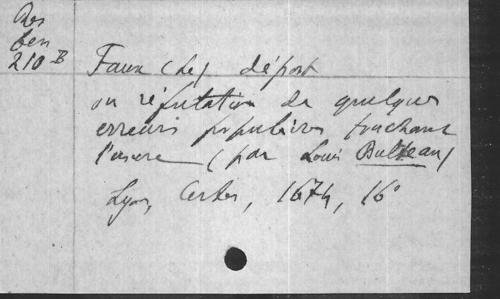 Res
ben
210 B
Faux (le) dépost
ou réfutation de quelques
erreurs populaires touchant
l'usure (par Louis Bulteau)
Lyon, Certes, 1674, 16°